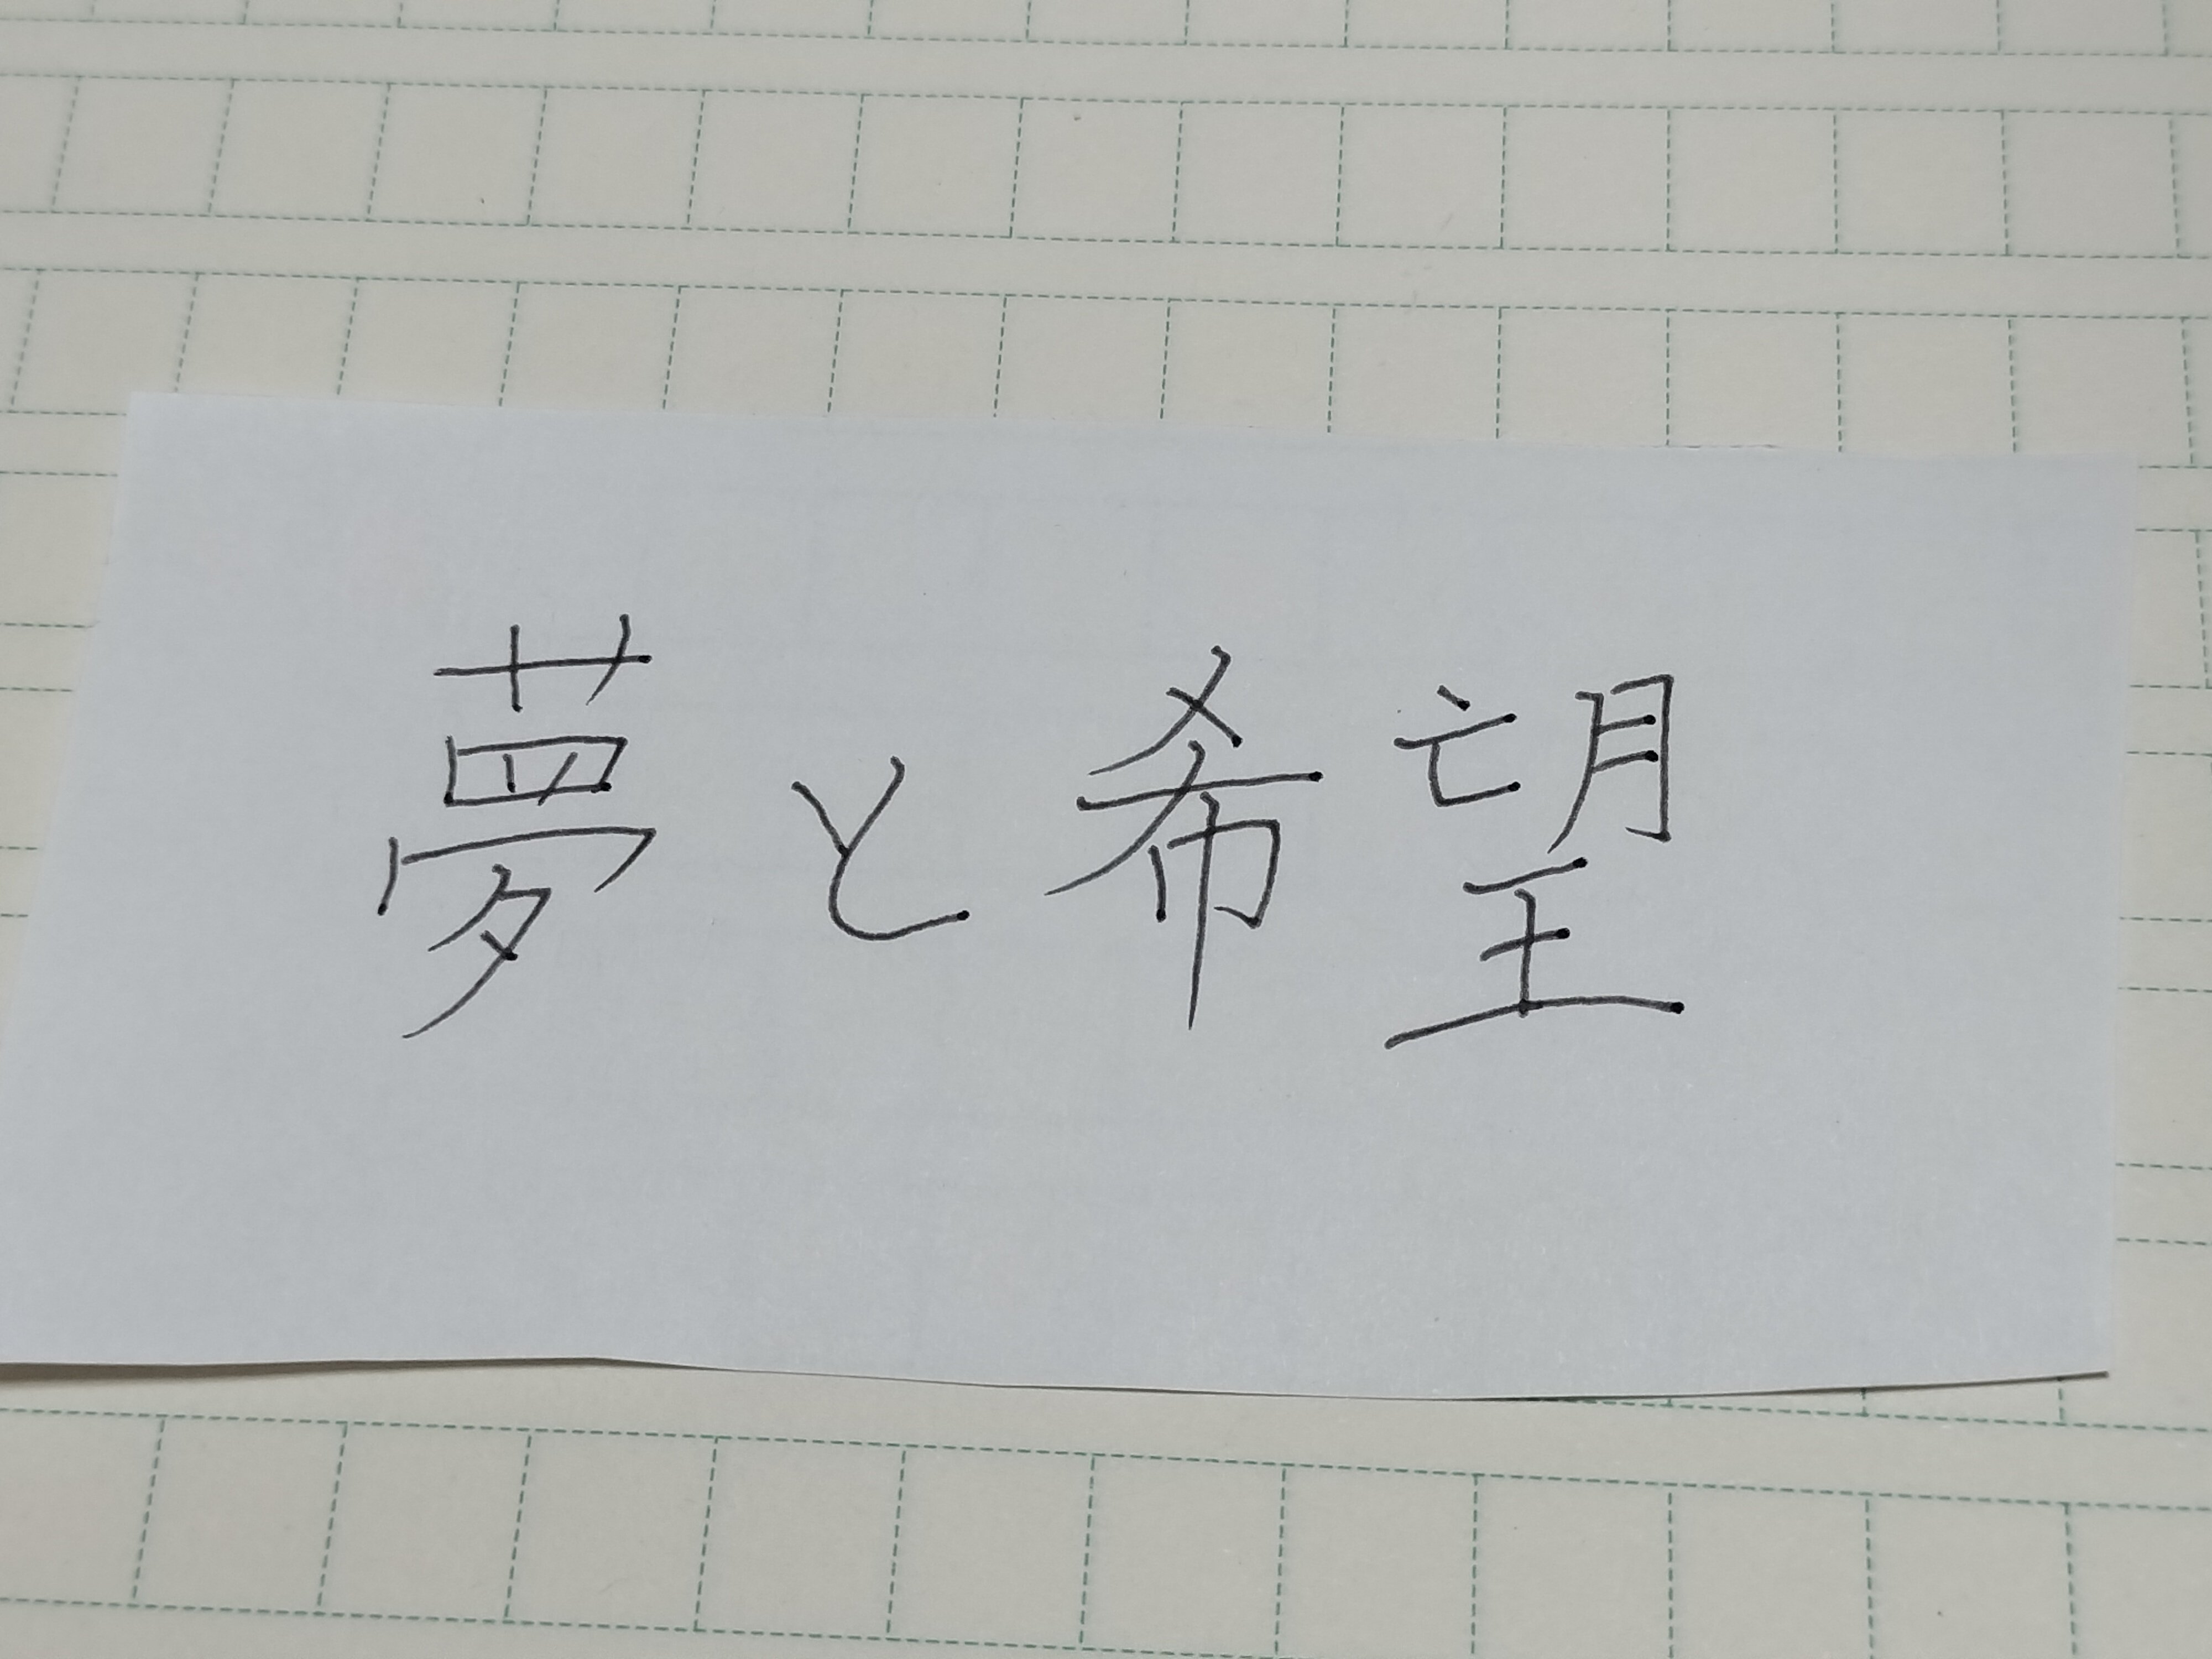 夢と希望